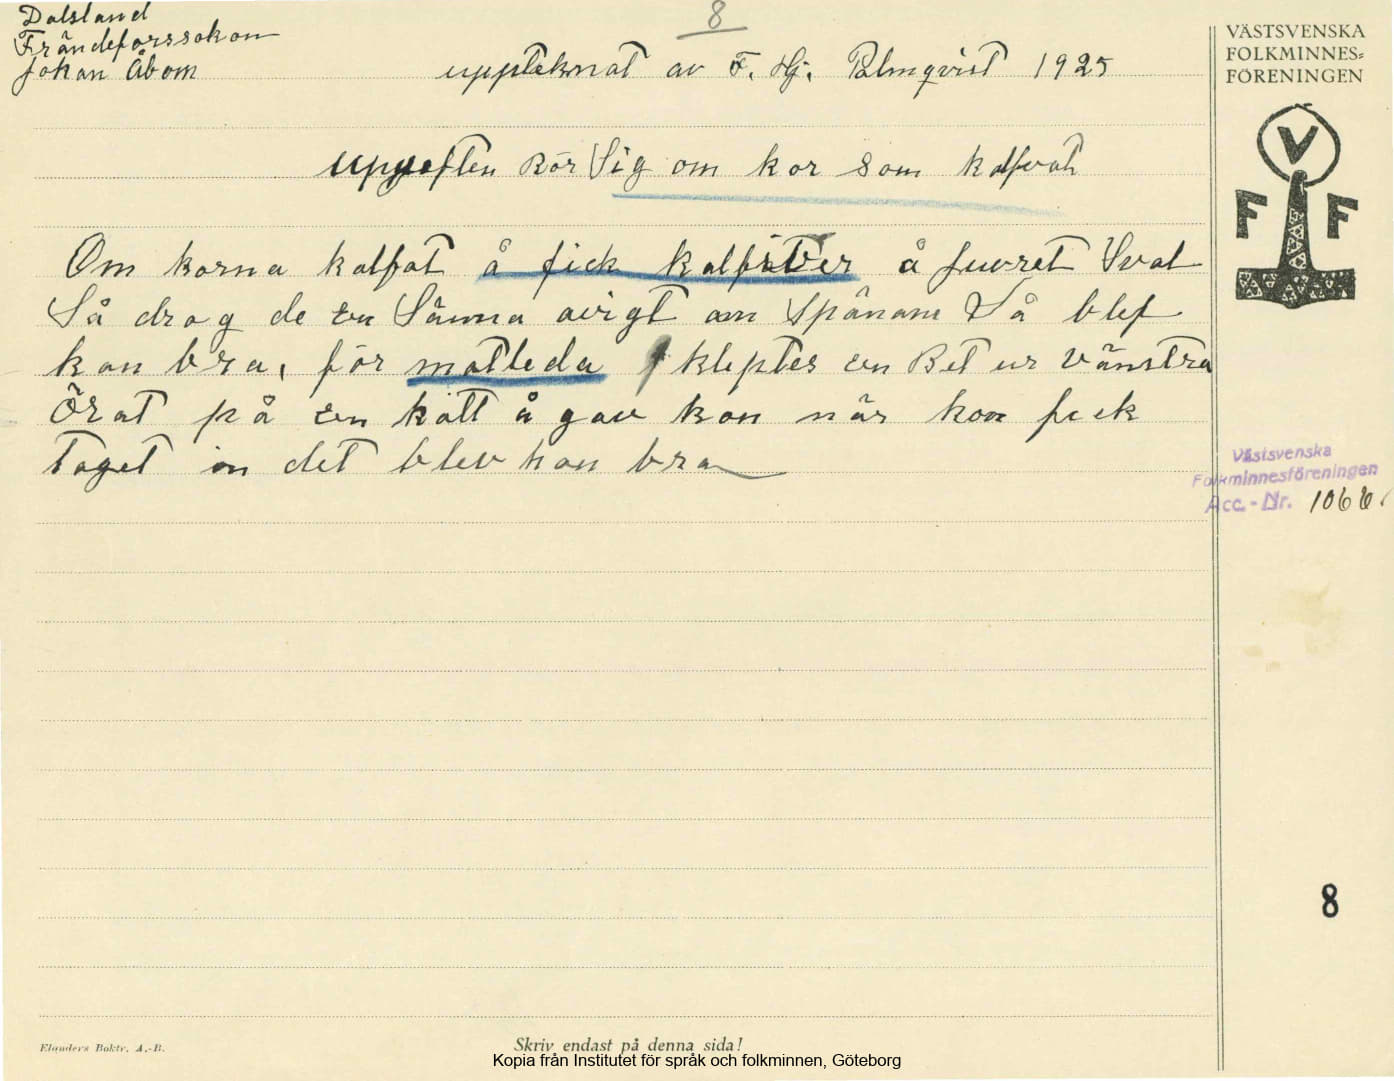 8
Dalsland
Frändeforssokon
Johan Åbom
uppteknat av F. Hj. Palmqvist 1925
uppgeften Rör Sig om kor som kalfvat
Om korna kalfat å fick kalfsiver å juvret Sval
Så drog de en Sånna avigt om Spånane Så blef
kon bra, för matleda kleptes en Bet ur vänstra
Örat på en katt å gav kon när kon fick
taget in det blev hon bra
VÄSTSVENSKA
FOLKMINNES-
FÖRENINGEN
V
F F
Västsvenska
Folkminnesföreningen
Acc.-Nr. 1066
8
Elanders Boktr. A.-B.
Skriv endast på denna sida!
Kopia från Institutet för språk och folkminnen, Göteborg